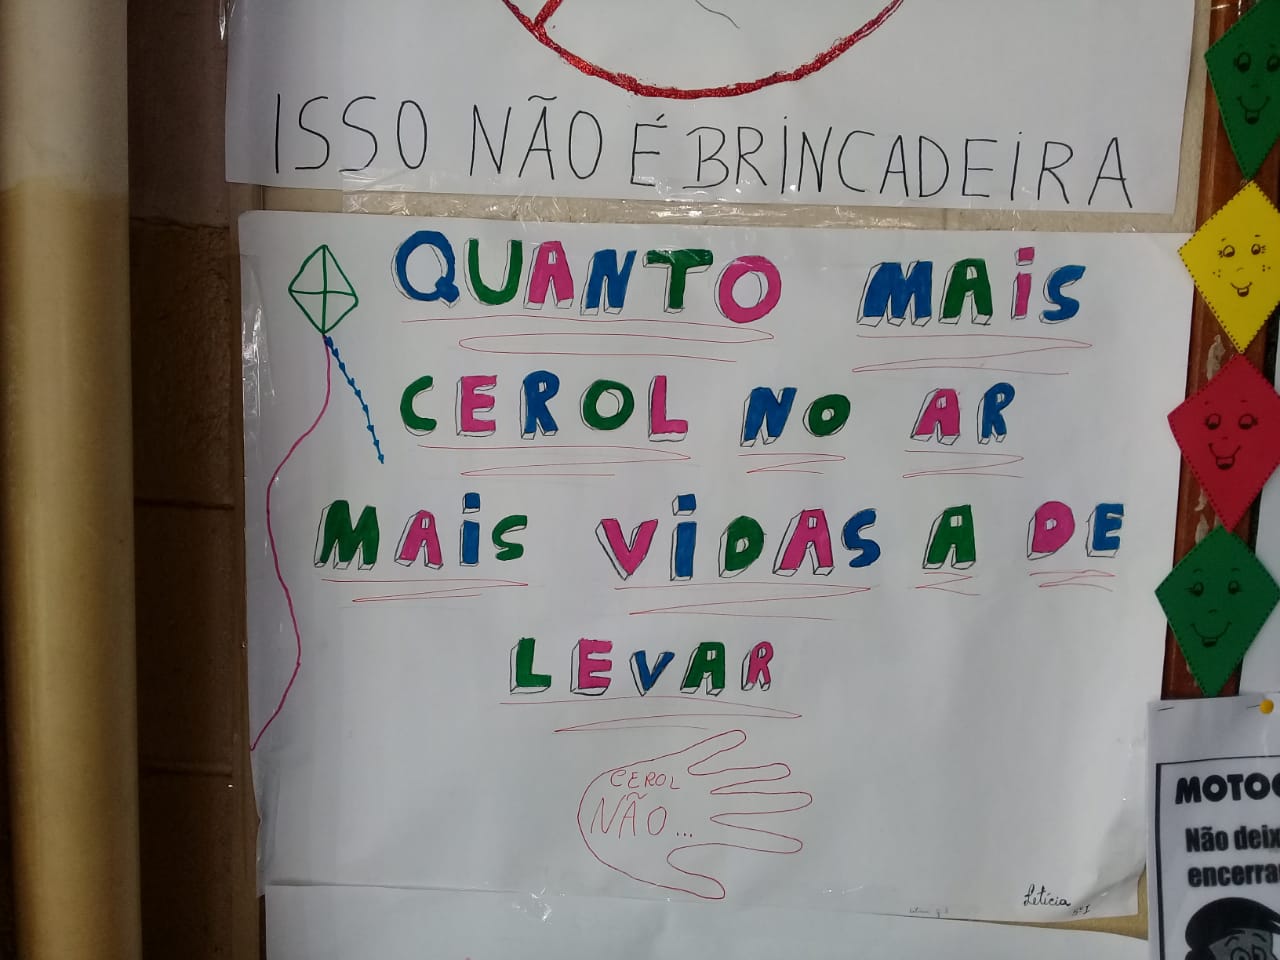 ISSO NÃO É BRINCADEIRA
QUANTO MAIS
CEROL NO AR
MAIS VIDAS A DE
LEVAR
CEROL
NÃO...
Letícia
5º I
MOTOC
Não deix
encerra